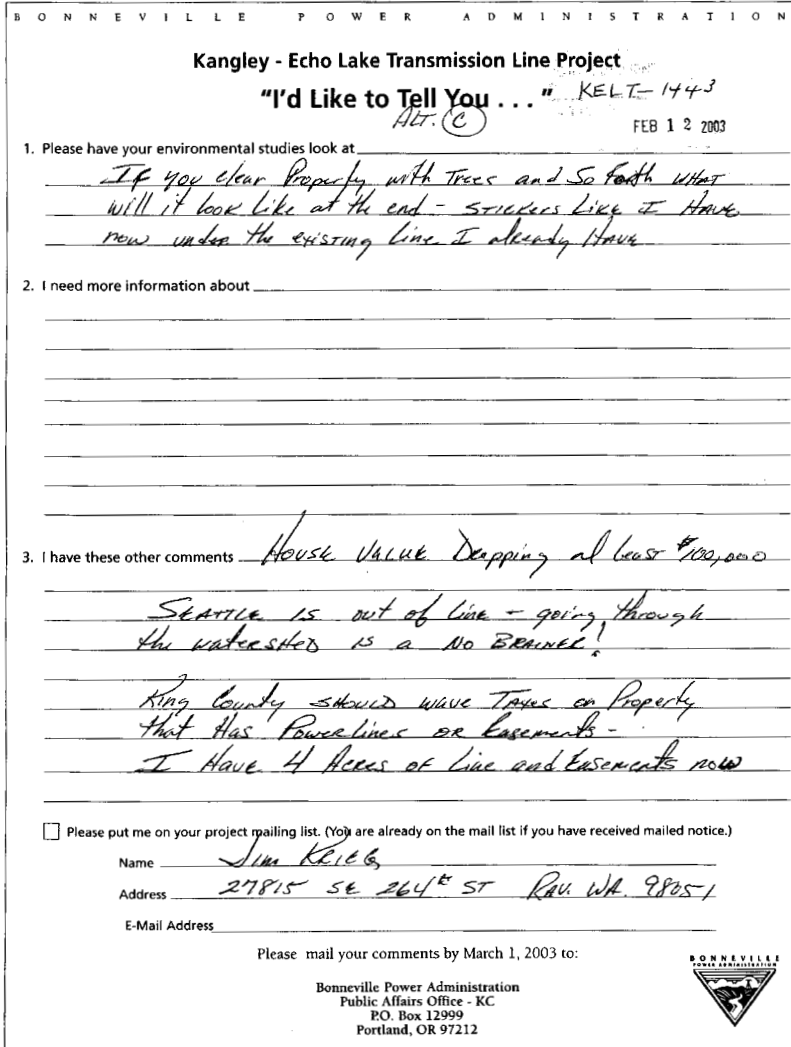 BONNEVILLE POWER ADMINISTRATION
Kangley - Echo Lake Transmission Line Project
"I'd Like to Tell You . . . " KELT-1443
ALT. C
FEB 12 2003
1. Please have your environmental studies look at
If you clear Property with Trees and So Forth WHAT
will it look like at the end - STICKERS LIKE I HAVE
now under the existing line I already HAVE
2. I need more information about
3. I have these other comments HOUSE VALUE Dropping at least $100,000
SEATTLE IS out of line - going through
the watershed is a NO BRAINER!
King County SHOULD wave Taxes on Property
that Has Powerlines OR Easements -
I HAVE 4 Acres of Line and Easements now
Please put me on your project mailing list. (You are already on the mail list if you have received mailed notice.)
Name Jim KRIEG
Address 27815 SE 264th ST RAV. WA. 98051
E-Mail Address
Please mail your comments by March 1, 2003 to:
Bonneville Power Administration
Public Affairs Office - KC
P.O. Box 12999
Portland, OR 97212
BONNEVILLE
POWER ADMINISTRATION